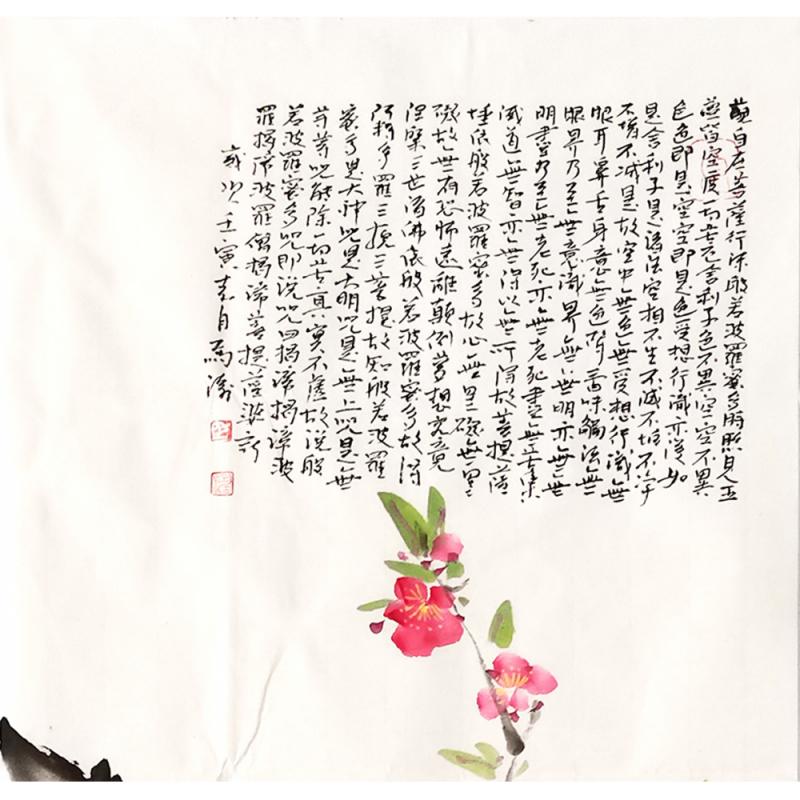 觀自在菩薩行深般若波羅蜜多時照見五
蘊皆空度一切苦厄舍利子色不異空空不異
色色即是空空即是色受想行識亦復如
是舍利子是諸法空相不生不滅不垢不淨
不增不減是故空中無色無受想行識無
眼耳鼻舌身意無色聲香味觸法無
眼界乃至無意識界無無明亦無無
明盡乃至無老死亦無老死盡無苦集
滅道無智亦無得以無所得故菩提薩
埵依般若波羅蜜多故心無罣礙無罣
礙故無有恐怖遠離顛倒夢想究竟
涅槃三世諸佛依般若波羅蜜多故得
阿耨多羅三藐三菩提故知般若波羅
蜜多是大神咒是大明咒是無上咒是無
等等咒能除一切苦真實不虛故說般
若波羅蜜多咒即說咒曰揭諦揭諦波
羅揭諦波羅僧揭諦菩提薩婆訶
歲次壬寅春月馬